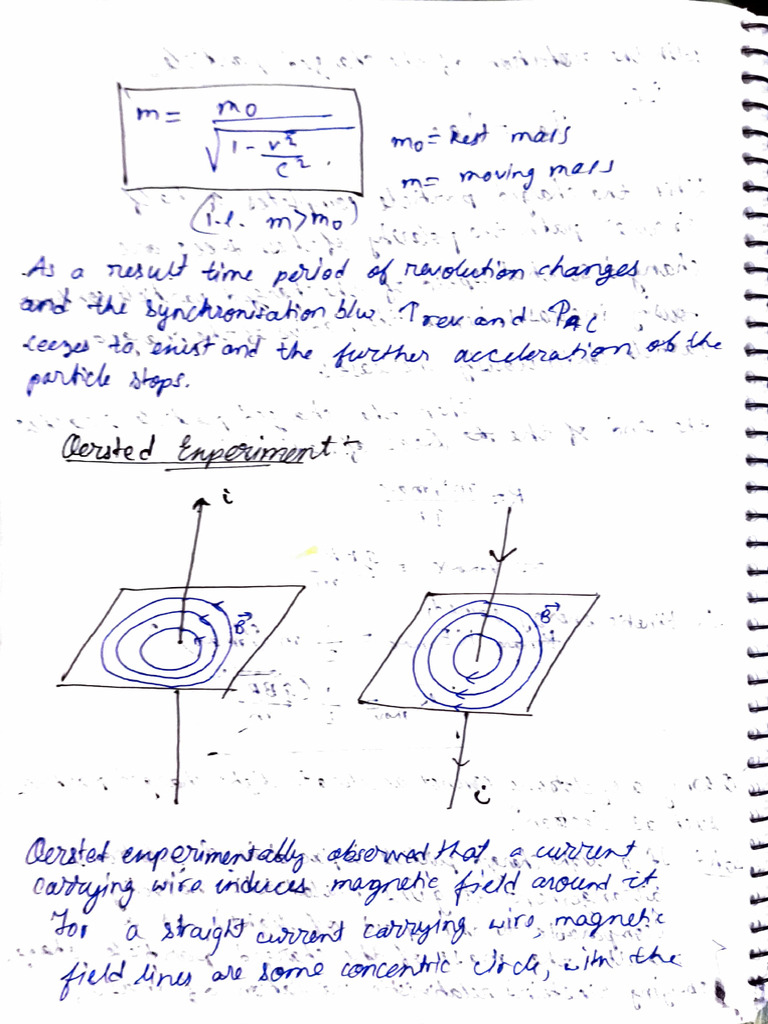 m = m0 / √(1 - v²/c²)
m0 = Rest mass
m = moving mass
(i.e. m > m0)
As a result time period of revolution changes
and the synchronisation b/w Trev and TAC
ceezes to exist and the further acceleration of the
particle stops.
Oersted Experiment :-
i
B⃗
B⃗
i
Oersted experimentally observed that a current
carrying wire induces magnetic field around it
For a straight current carrying wire, magnetic
field lines are some concentric circle, with the